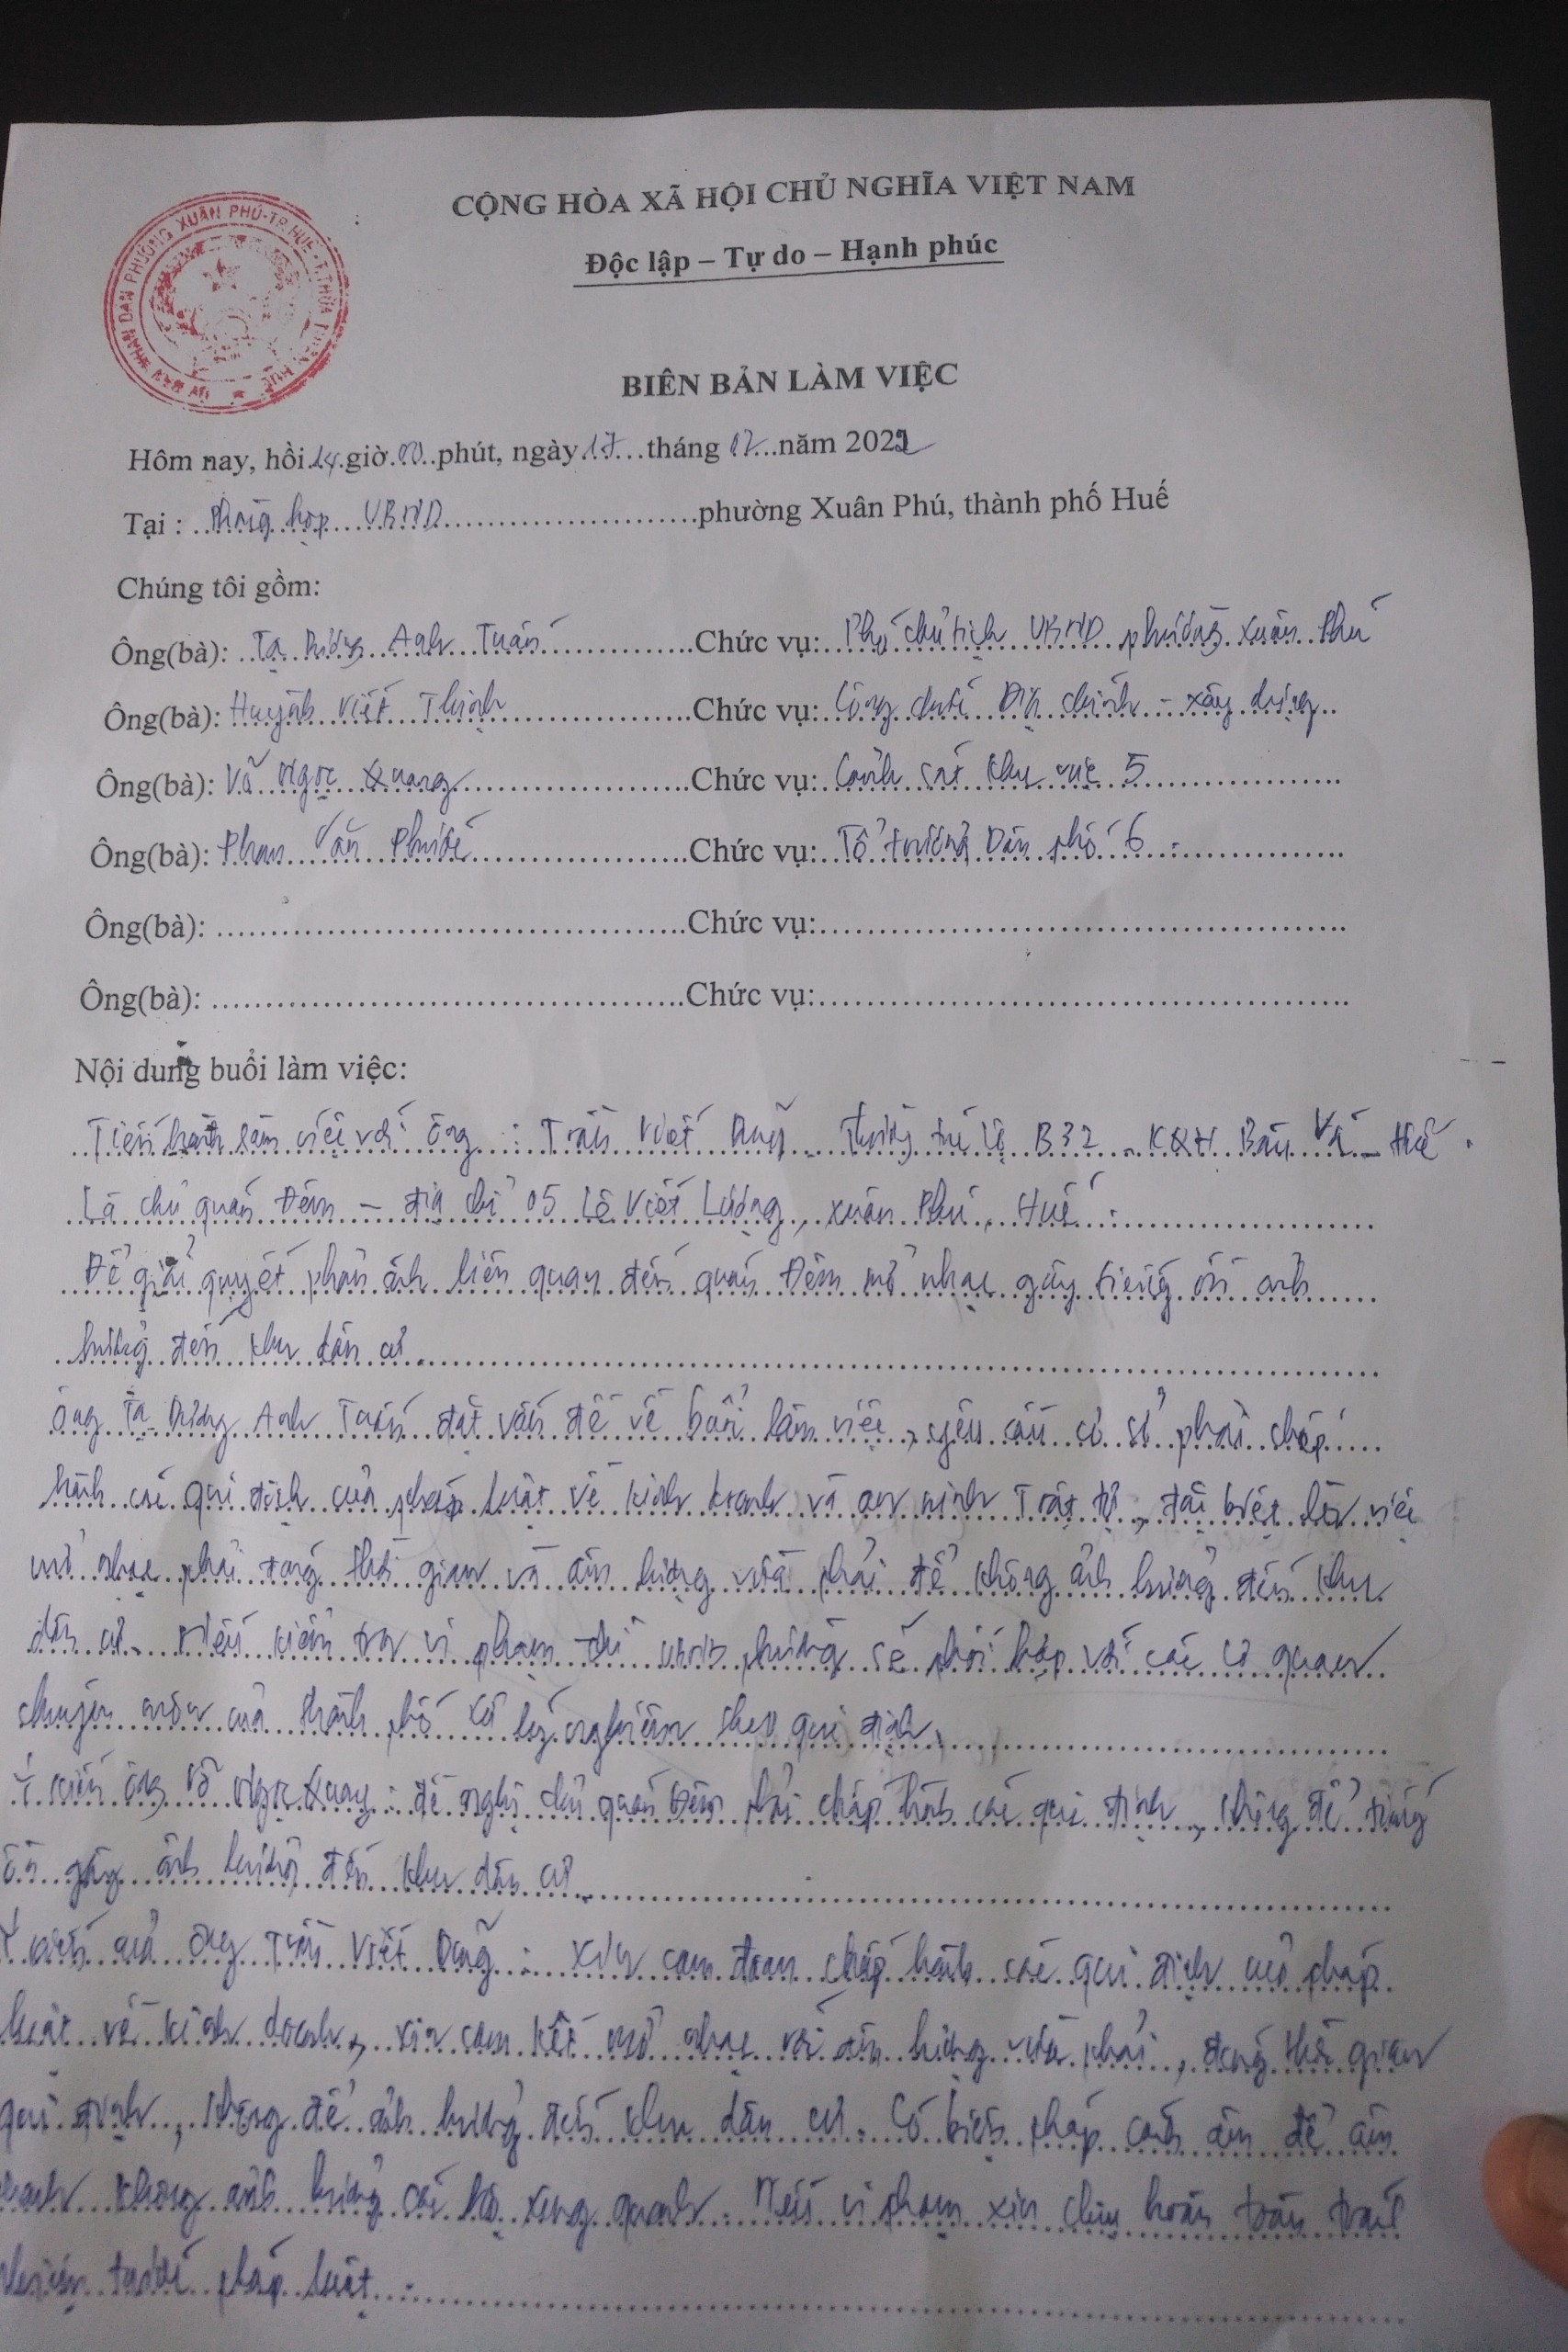 CỘNG HÒA XÃ HỘI CHỦ NGHĨA VIỆT NAM
Độc lập – Tự do – Hạnh phúc
ỦY BAN NHÂN DÂN PHƯỜNG XUÂN PHÚ-TP.HUẾ-T.THỪA THIÊN HUẾ
BIÊN BẢN LÀM VIỆC
Hôm nay, hồi 14 giờ 00 phút, ngày 17 tháng 02 năm 2022
Tại : phòng họp UBND phường Xuân Phú, thành phố Huế
Chúng tôi gồm:
Ông(bà): Tạ Dương Anh Tuấn Chức vụ: Phó chủ tịch UBND phường Xuân Phú
Ông(bà): Huỳnh Viết Thịnh Chức vụ: Công chức Địa chính - xây dựng
Ông(bà): Võ Ngọc Quang Chức vụ: Cảnh sát khu vực 5
Ông(bà): Phan Văn Phước Chức vụ: Tổ trưởng Dân phố 6.
Ông(bà): Chức vụ:
Ông(bà): Chức vụ:
Nội dung buổi làm việc:
Tiến hành làm việc với ông : Trần Viết Dũng Thường trú lô B32 - KQH Bàu Vá - Huế.
Là chủ quán Đêm - địa chỉ 05 Lê Viết Lượng, Xuân Phú, Huế.
Để giải quyết phản ánh liên quan đến quán Đêm mở nhạc gây tiếng ồn ảnh
hưởng đến khu dân cư.
Ông Tạ Dương Anh Tuấn đặt vấn đề về buổi làm việc, yêu cầu cơ sở phải chấp
hành các qui định của pháp luật về kinh doanh và an ninh trật tự, đặc biệt là việc
mở nhạc phải đúng thời gian và âm lượng vừa phải để không ảnh hưởng đến khu
dân cư. Nếu kiểm tra vi phạm thì UBND phường sẽ phối hợp với các cơ quan
chuyên môn của thành phố xử lý nghiêm theo qui định.
Ý kiến ông Võ Ngọc Quang : đề nghị chủ quán Đêm phải chấp hành các qui định, không để tiếng
ồn gây ảnh hưởng đến khu dân cư.
Ý kiến của ông Trần Viết Dũng : Xin cam đoan chấp hành các qui định của pháp
luật về kinh doanh, xin cam kết mở nhạc với âm lượng vừa phải, đúng thời gian
qui định, không để ảnh hưởng đến khu dân cư. Có biện pháp cách âm để âm
thanh không ảnh hưởng các hộ xung quanh. Nếu vi phạm xin chịu hoàn toàn trách
nhiệm trước pháp luật.